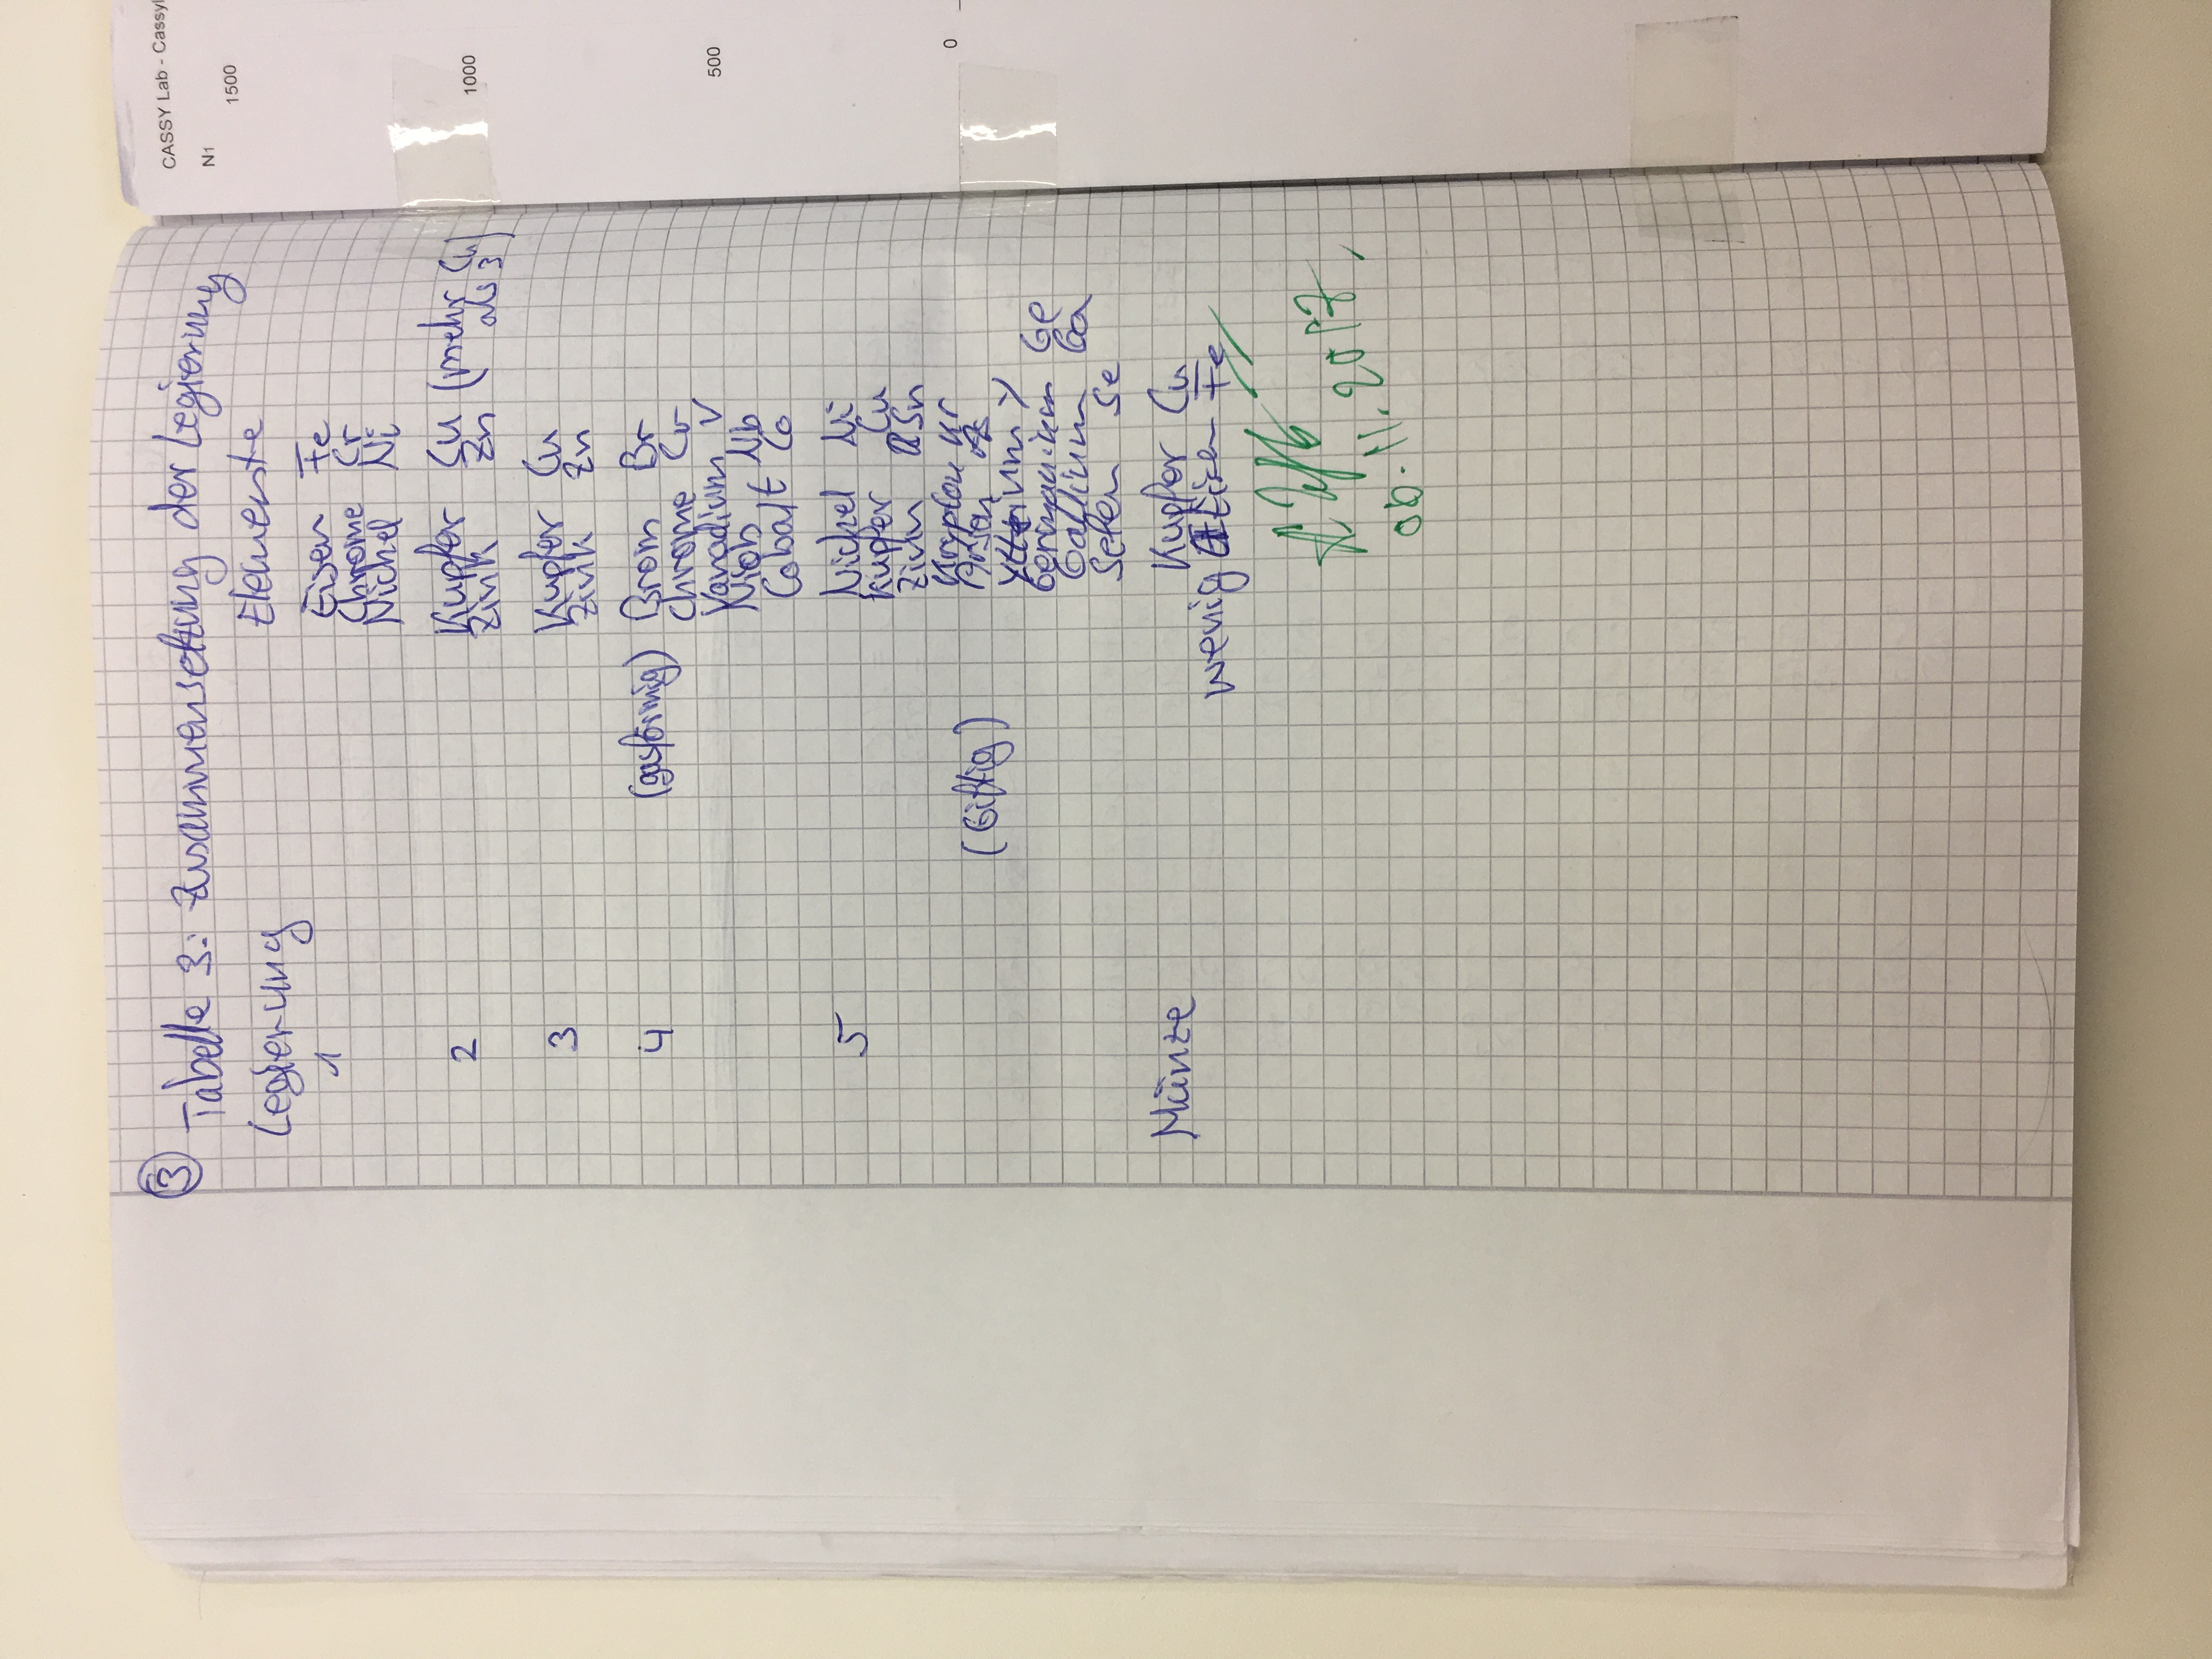 3
Tabelle 3: Zusammensetzung der Legierung
Legierung Elemente
1 Eisen Fe
Chrome Cr
Nickel Ni
2 Kupfer Cu (mehr Cu
Zink Zn als 3)
3 Kupfer Cu
Zink Zn
4 (gasförmig) Brom Br
Chrome Cr
Vanadium V
Niob Nb
Cobalt Co
5 Nickel Ni
Kupfer Cu
Zinn Sn
Krypton Kr
(Giftig) Arsen As
Yttrium Y
Germanium Ge
Gallium Ga
Selen Se
Münze Kupfer Cu
wenig Eisen Fe
06.11.2017
CASSY Lab - Cassyl
N1
1500
1000
500
0